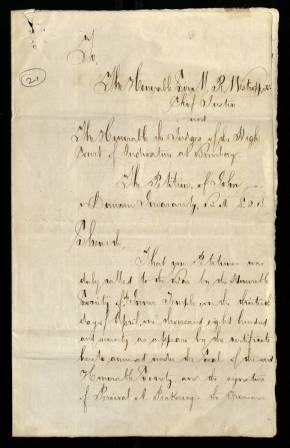 2
To,
The Honorable Georg M. R. Westropp,
Chief Justice
and
The Honorable the Judges of the High
Court of Judicature at Bombay.
The Petition of John
Jeewanarity, B. A. L. L. B
Sheweth,
That your Petitioner was
duly called to the Bar by the Honorable
Society of the Inner Temple, on the
days of April, one thousand eight hundred
and seventy as appears by the certificate
hereto annexed under the Seal of the said
Honorable Society, and the signature
of Percival A. Pickering the Treasurer